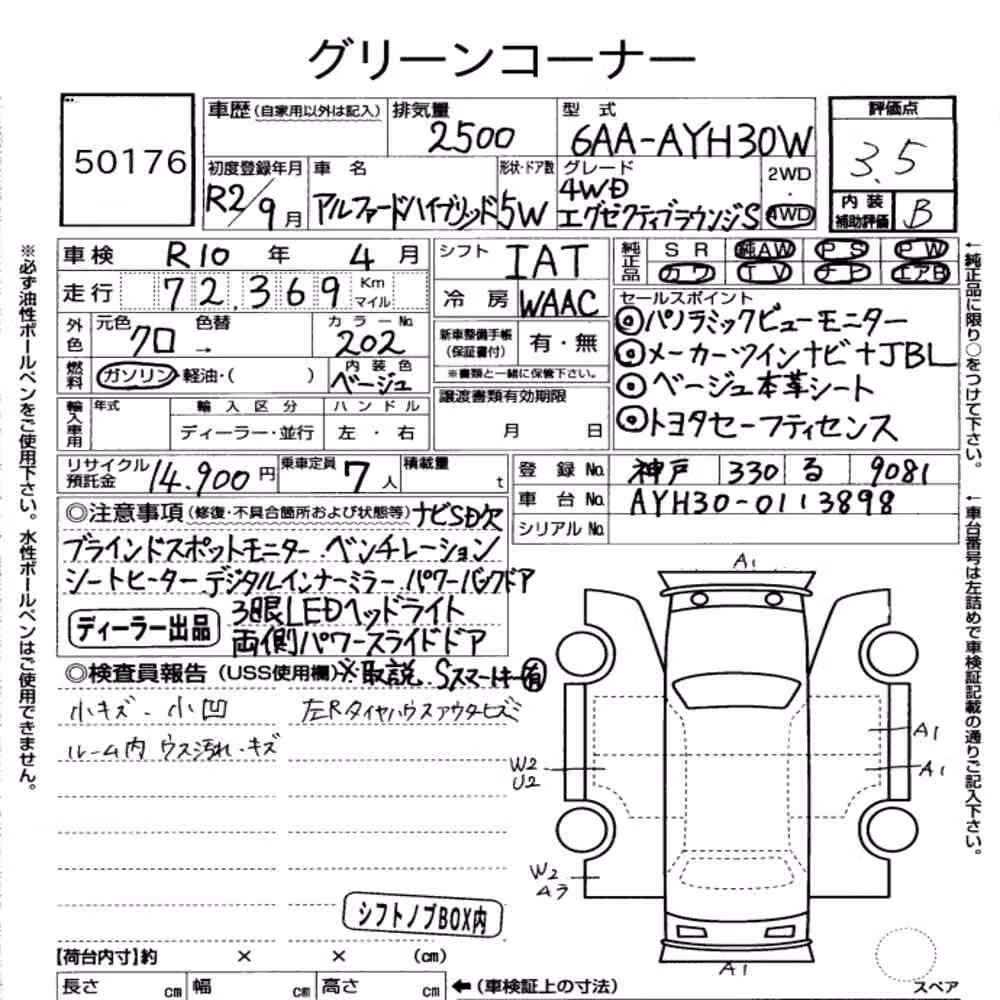 グリーンコーナー
50176
車歴 (自家用以外は記入) 排気量 2500 型式 6AA-AYH30W 評価点 3.5
初度登録年月 R2/9月 車名 アルファードハイブリッド 形状・ドア数 5W グレード 4WD エグゼクティブラウンジS 2WD・4WD 内装補助評価 B
車検 R10年 4月 シフト IAT 純正品 SR 純AW PS PW
走行 72,369 Km マイル 冷房 WAAC カワ TV ナビ エアB
外色 元色 クロ 色替 → カラーNo. 202 新車整備手帳(保証書付) 有・無
※書類と一緒に保管下さい。
燃料 ガソリン・軽油・( ) 内装色 ベージュ
セールスポイント
◎パノラミックビューモニター
◎メーカーツインナビ+JBL
◎ベージュ本革シート
◎トヨタセーフティセンス
輸入車用 年式 輸入区分 ディーラー・並行 ハンドル 左・右 譲渡書類有効期限 月 日
リサイクル預託金 14,900円 乗車定員 7人 積載量 t
登録No. 神戸 330 る 9081
車台No. AYH30-0113898
シリアルNo.
◎注意事項(修復・不具合箇所および状態等) ナビSD欠
ブラインドスポットモニター.ベンチレーション
シートヒーター.デジタルインナーミラー.パワーバックドア
ディーラー出品 3眼LEDヘッドライト
両側パワースライドドア
◎検査員報告(USS使用欄) ※取説.Sスマートキー有
小キズ・小凹 左Rタイヤハウスアウタヒズミ
ルーム内 ウス汚れ・キズ
シフトノブBOX内
A1
A1
A1
W2
U2
W2
A1
【荷台内寸】約 × × (cm)
長さ cm 幅 cm 高さ cm ←(車検証上の寸法)
スペア
※必ず油性ボールペンをご使用下さい。水性ボールペンはご使用できません。
←純正品に限り○をつけて下さい。
←車台番号は左詰めで車検証記載の通りご記入下さい。